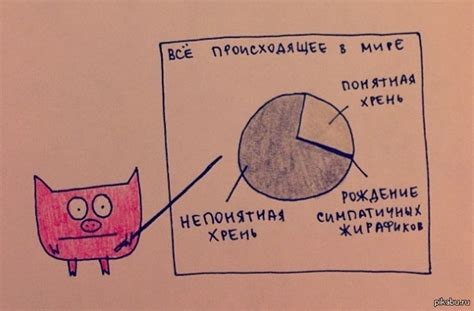 ВСЁ ПРОИСХОДЯЩЕЕ В МИРЕ
ПОНЯТНАЯ
ХРЕНЬ
НЕПОНЯТНАЯ
ХРЕНЬ
РОЖДЕНИЕ
СИМПАТИЧНЫХ
ЖИРАФИКОВ
pikabu.ru